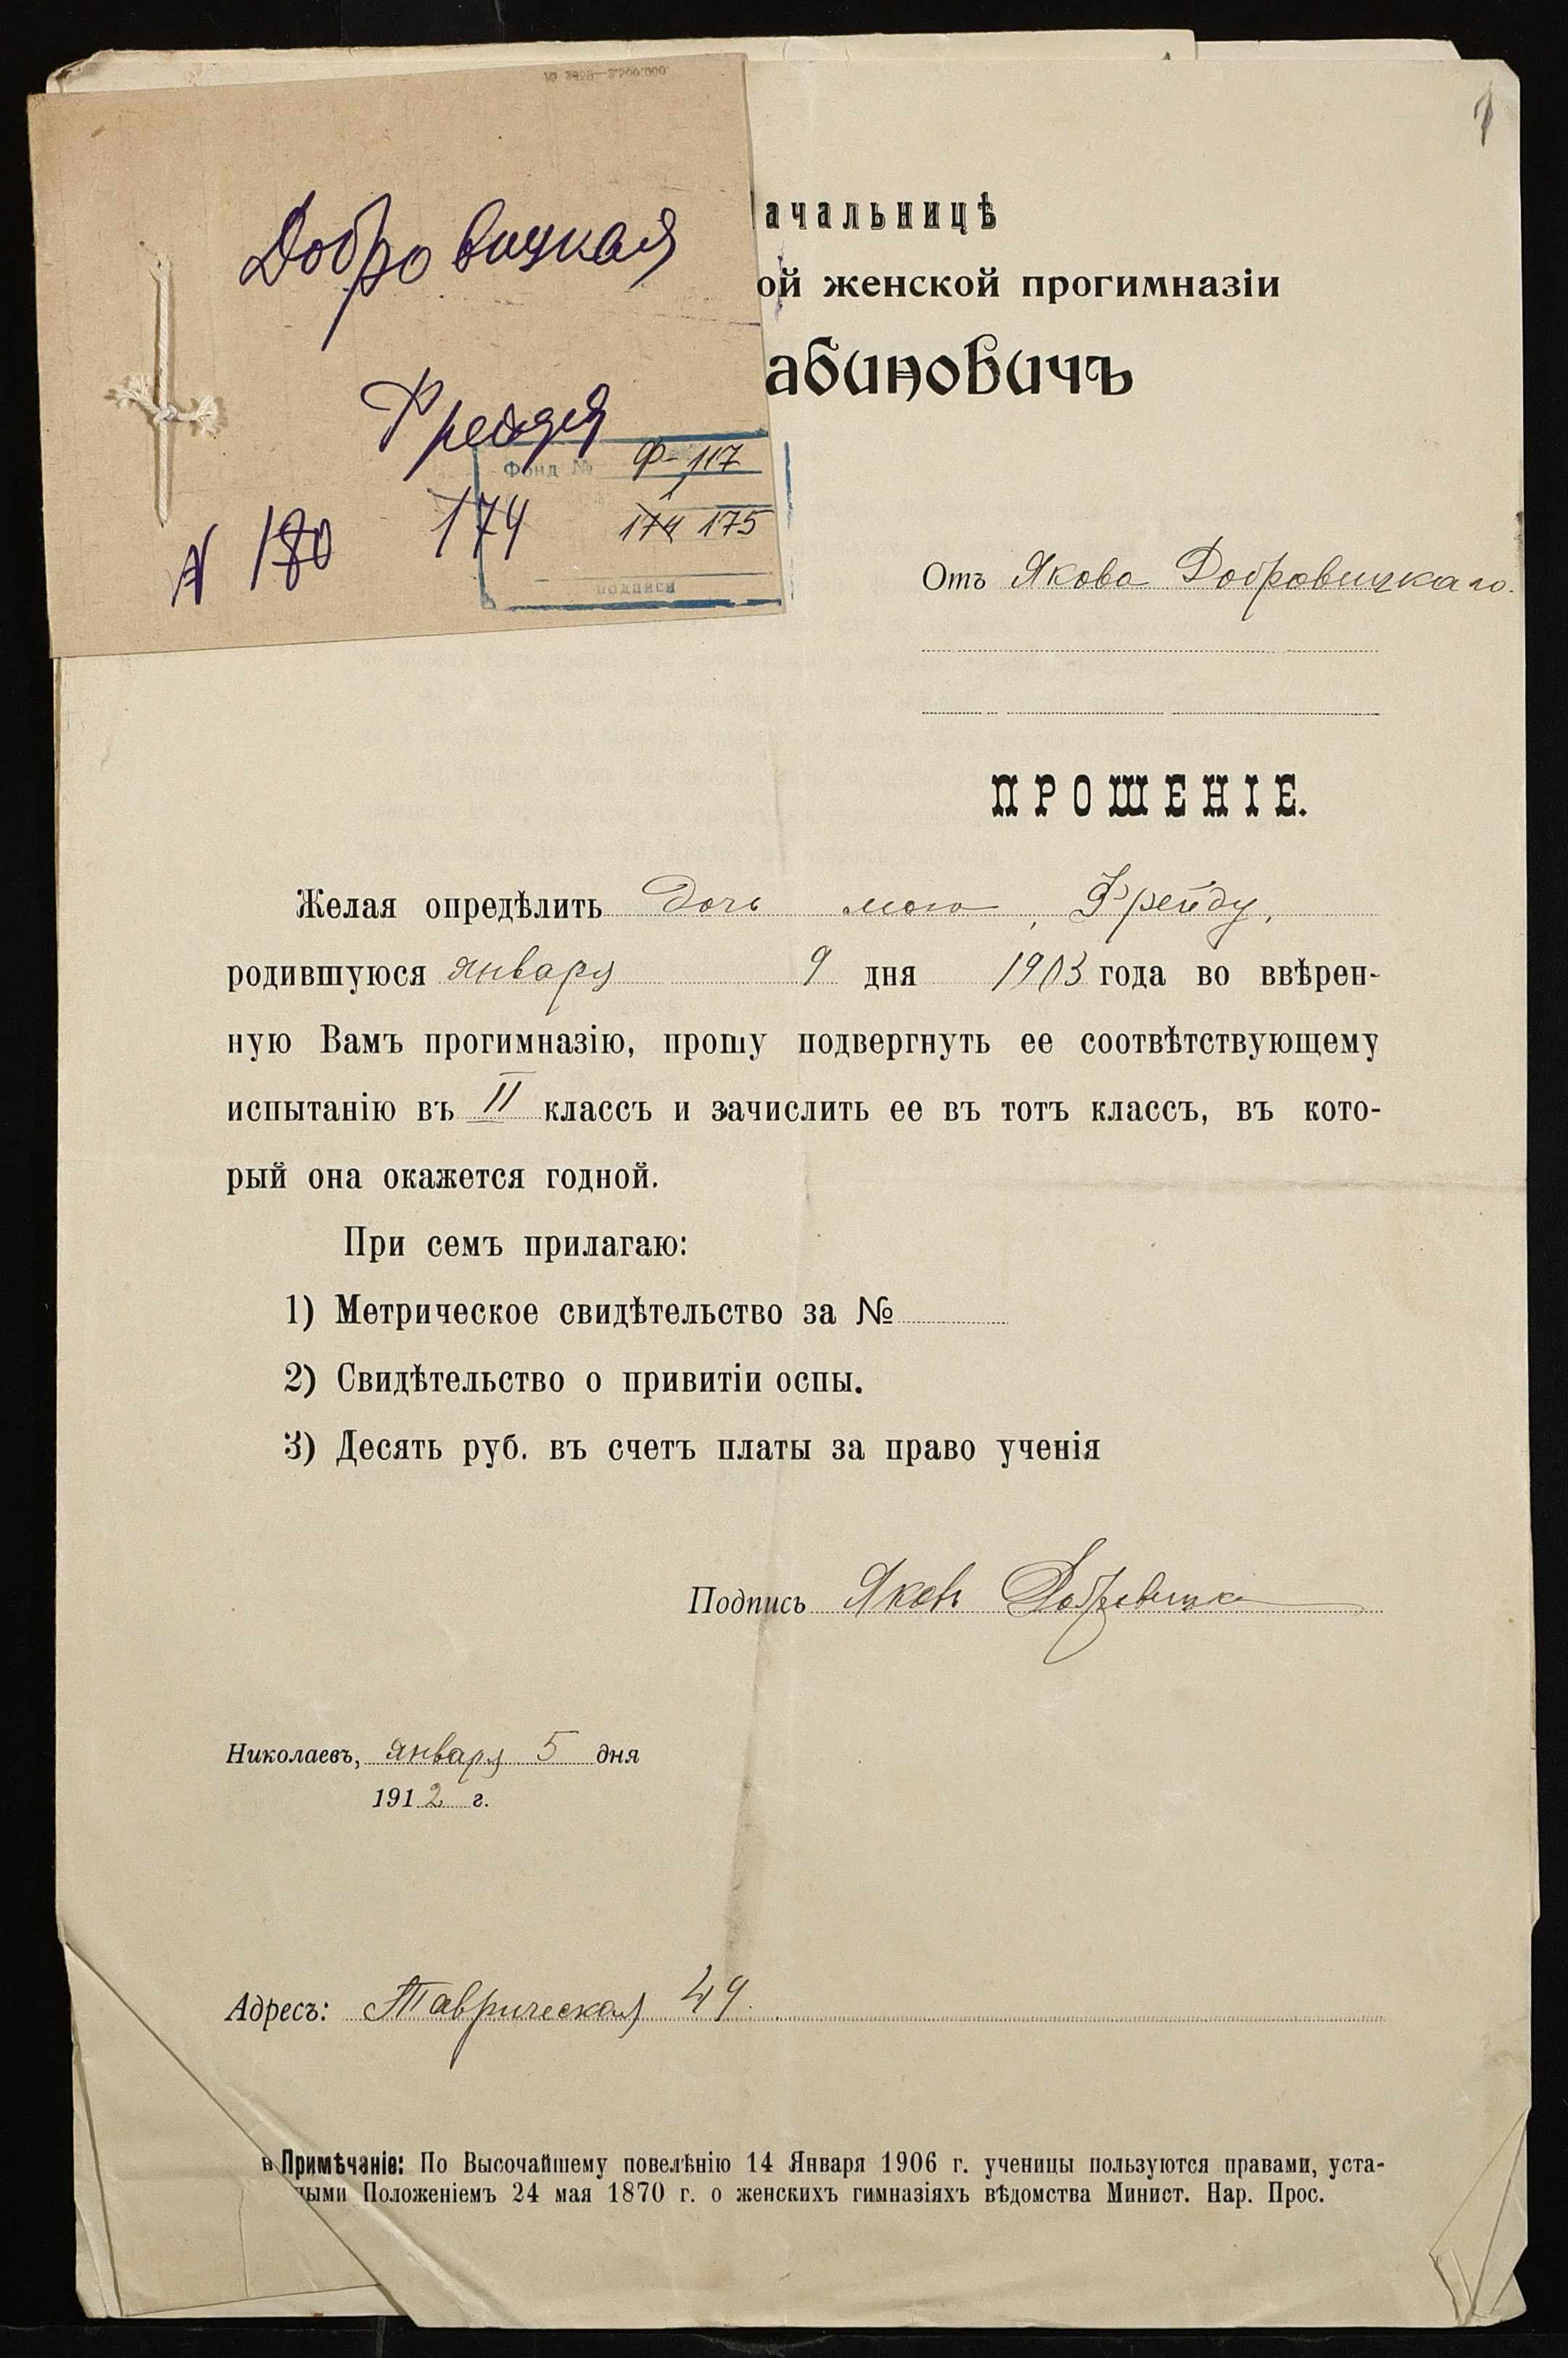 Добровицкая
Фрейда
N 180 174
Фонд № Ф-117
1
174 175
подписи
ачальницѣ
ой женской прогимназіи
абиновичъ
Отъ Якова Добровицкаго.
ПРОШЕНІЕ.
Желая опредѣлить дочь мою, Фрейду,
родившуюся января 9 дня 1903 года во ввѣрен-
ную Вамъ прогимназію, прошу подвергнуть ее соотвѣтствующему
испытанію въ II классъ и зачислить ее въ тотъ классъ, въ кото-
рый она окажется годной.
При семъ прилагаю:
1) Метрическое свидѣтельство за №
2) Свидѣтельство о привитіи оспы.
3) Десять руб. въ счетъ платы за право ученія
Подпись Яковъ Добровицкі
Николаевъ, января 5 дня
1912 г.
Адресъ: Таврическая 49.
Примѣчаніе: По Высочайшему повелѣнію 14 Января 1906 г. ученицы пользуются правами, уста-
ными Положеніемъ 24 мая 1870 г. о женскихъ гимназіяхъ вѣдомства Минист. Нар. Прос.